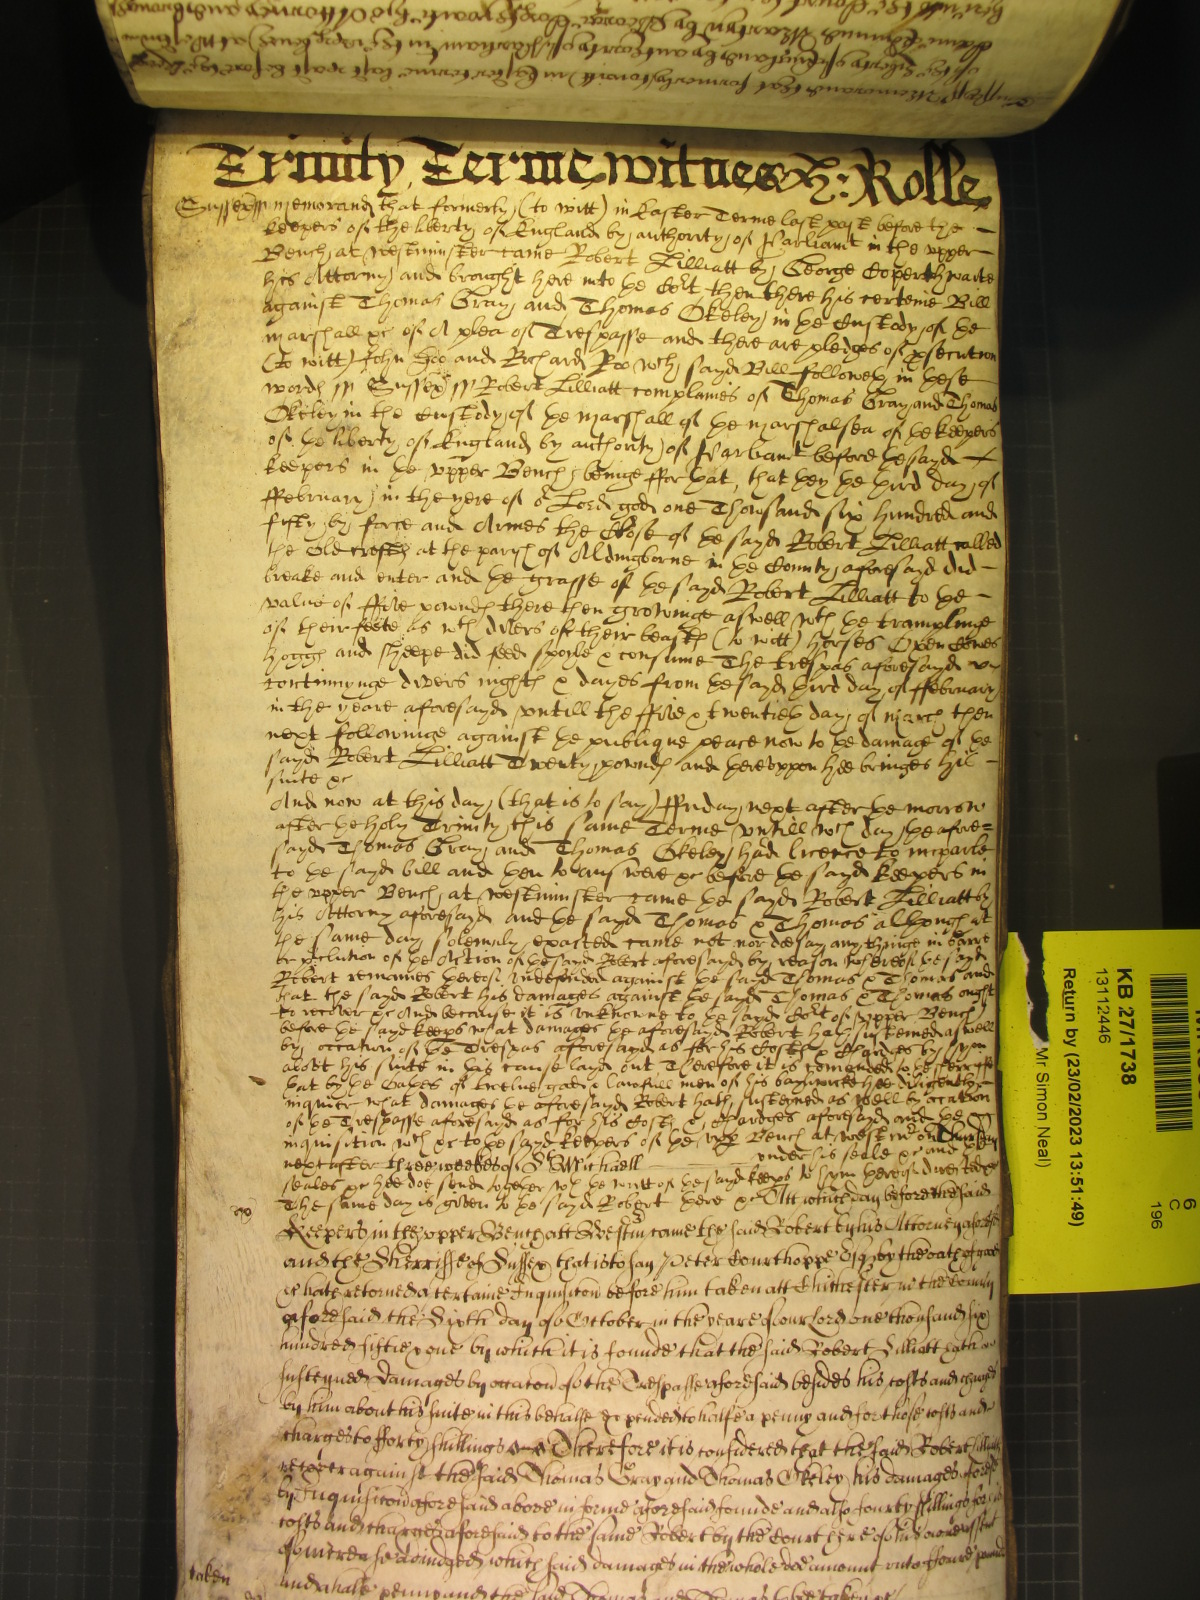 Trinity Terme witnes H: Rolle
Sussex ss Memorand that formerly (to witt) in Easter Terme last past before the
keepers of the liberty of England by authority of Parliamt in the upper
Bench at Westminster came Robert Lilliatt by George Coperthwaite
his Attorny and brought here into ye Cort then there his certeine Bill
against Thomas Gray and Thomas Okeley in ye Custody of ye
marshall &c of A plea of Trespasse and there are pledges of psecution
(to witt) John Doo and Richard Roo wch sayd Bill followeth in these
words ss Sussex ss Robert Lilliatt complaines of Thomas Gray and Thomas
Okeley in the Custody of ye marshall of ye marshalsea of ye keepers
of ye liberty of England by authority of Parliamt before ye sayd
keepers in ye upper Bench beinge ffor yat, that they ye third day of
ffebruary in the yere of or Lord god one Thowsand six hundred and
fifty by force and Armes the Close of ye sayd Robert Lilliatt called
the Old at the parish of Aldingborne in ye County aforesayd did
breake and enter and ye grasse of ye sayd Robert Lilliatt to ye
value of ffive pownds there then growinge aswell wth ye tramplinge
of their feete as wth divers of their beasts (to witt) horses Oxen Cowes
hoggs and sheepe did feed spoyle & consume The trespas aforesayd
continuynge divers nights & dayes from ye sayd third day of ffebruary
in the yeare aforesayd untill the ffive & twentieth day of March then
next followinge against ye publique peace now to ye damage of ye
sayd Robert Lilliatt Twenty pownds and hereuppon hee bringes his
suite &c
And now at this day (that is to say) ffriday next after ye morrow
after ye holy Trinity this same Terme untill wch day ye afore=
sayd Thomas Gray and Thomas Okeley had licence to imparle
to ye sayd bill and then to answere &c before ye sayd keepers in
the upper Bench at Westminster came ye sayd Robert Lilliatt by
his Attorny aforesayd and ye sayd Thomas & Thomas although at
the same day solemnly exacted came not nor doe say any thinge in barre
or of ye Action of ye sayd Robert aforesayd by reason whereof ye sayd
Robert remaines thereof undefended against ye sayd Thomas & Thomas and
that the sayd Robert his damages against ye sayd Thomas & Thomas ought
to recover &c And because it is unknowne to ye sayd Cort of upper Bench
before ye sayd keeps what damages ye aforesayd Robert hath susteined aswell
by occation of ye Trespas aforesayd as for his Costs & Charges by hym
about his suite in this cause layd out Therefore it is comended to ye sherriffe
yat by ye Oathes of twelve good & lawfull men of his baylywicke hee diligently
inquier what damages ye aforesayd Robert hath susteyned as well by occation
of ye Trespasse aforesayd as for his Costs & Chardges aforesayd and ye
inquisition wch &c to ye sayd keepers of ye upp Bench at Westmr on Thursday
next after three weekes of St Michaell under his seale &c and ye
seales &c hee doe send together wth ye writt of ye sayd keeps to hym thereof directed &c
The same day is given to ye sayd Robert here &c Att which day before the said
Keepers in the upper Bench att Westm came the said Robert by his Attorney aforesd
and the Sherriffe of Sussex that is to say Peter Courthoppe Esqr by the oath of good
&c hath retorned a certaine Inquisicon before him taken att Chichester in the County
aforesaid the Sixth day of October in the yeare of our Lord one thousand six
hundred fiftie & one by which it is founde that the said Robert Lilliatt hath
susteyned damages by occacon of the Trespasse aforesaid besides his costs and charges
by him about his suite in this behalfe expended to halfe a penny and for those costs and
charges to fforty shillings Therefore it is considered that the said Robert Lilliatt
recover against the said Thomas Gray and Thomas Okeley his damages aforesd
by Inquisicon aforesaid above in forme aforesaid founde and also fourty shillings for his
costs and charges aforesaid to the same Robert by the Court here of his owne assent
of increase adiudged which said damages in the whole doe amount unto foure pounds
taken
and a halfe penny and the said Thomas and Thomas to bee taken &c
KB 27/1738
13112446
Return by (23/02/2023 13:51:49)
Mr Simon Neal)
6
C
196